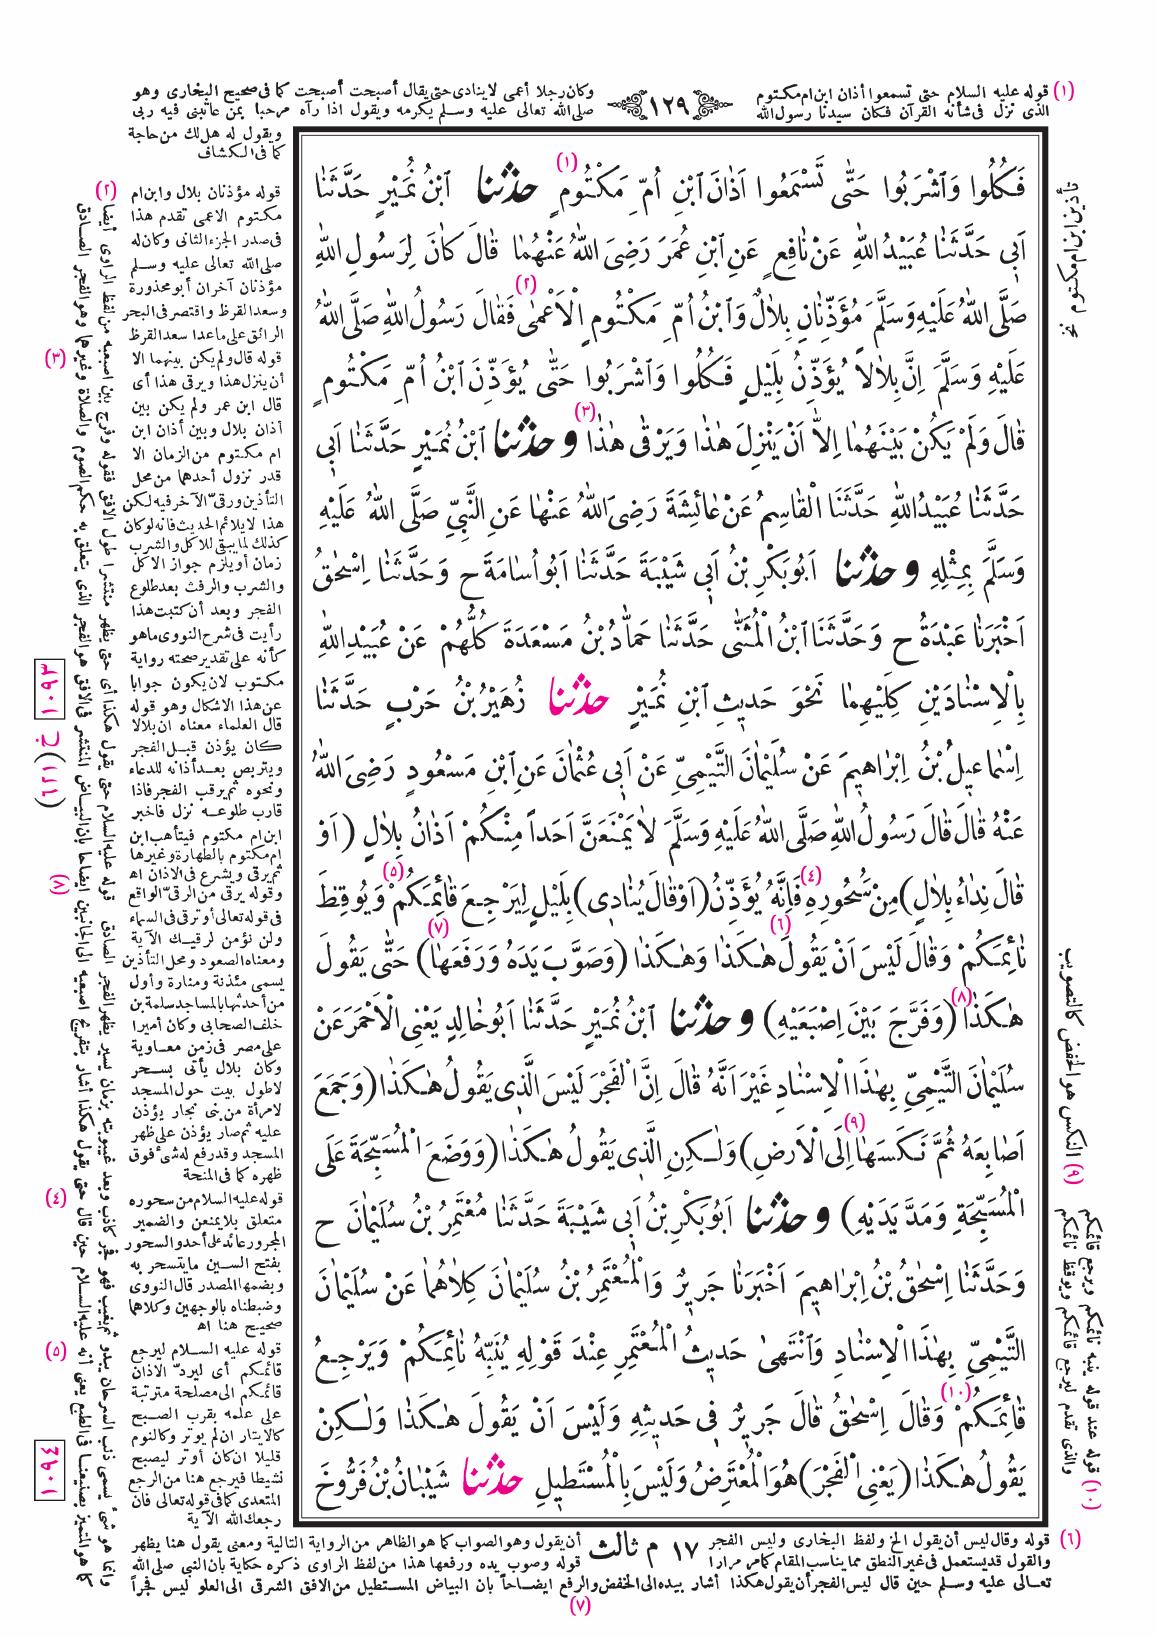 (١) قوله عليه السلام حتى تسمعوا أذان ابن ام مكتوم
الذى نزل فى شأنه القرآن فكان سيدنا رسول الله
١٢٩
وكان رجلا أعمى لاينادى حتى يقال أصبحت أصبحت كما فى صحيح البخارى وهو
صلى الله تعالى عليه وسلم يكرمه ويقول اذا رآه مرحبا بمن عاتبنى فيه ربى
ويقول له هل لك من حاجة
كما فى الكشاف
فَكُلُوا وَٱشْرَبُوا حَتَّى تَسْتَمِعُوا اَذَانَ ٱبْنِ اُمِّ مَكْتُومٍ (١) حدثنا ٱبْنُ نُمَيْرٍ حَدَّثَنَا
اَبِى حَدَّثَنَا عُبَيْدُ اللهِ عَنْ نَافِعٍ عَنِ ٱبْنِ عُمَرَ رَضِىَ اللهُ عَنْهُمَا قَالَ كَانَ لِرَسُولِ اللهِ
صَلَّى اللهُ عَلَيْهِ وَسَلَّمَ مُؤَذِّنَانِ بِلَالٌ وَٱبْنُ اُمِّ مَكْتُومٍ الْاَعْمٰى (٢) فَقَالَ رَسُولُ اللهِ صَلَّى اللهُ
عَلَيْهِ وَسَلَّمَ اِنَّ بِلَالاً يُؤَذِّنُ بِلَيْلٍ فَكُلُوا وَٱشْرَبُوا حَتَّى يُؤَذِّنَ ٱبْنُ اُمِّ مَكْتُومٍ
قَالَ وَلَمْ يَكُنْ بَيْنَهُمَا اِلاَّ اَنْ يَنْزِلَ هٰذَا وَيَرْقٰى هٰذَا (٣) و حدثنا ٱبْنُ نُمَيْرٍ حَدَّثَنَا اَبِى
حَدَّثَنَا عُبَيْدُ اللهِ حَدَّثَنَا الْقَاسِمُ عَنْ عَائِشَةَ رَضِىَ اللهُ عَنْهَا عَنِ النَّبِىِّ صَلَّى اللهُ عَلَيْهِ
وَسَلَّمَ بِمِثْلِهِ و حدثنا اَبُو بَكْرِ بْنُ اَبِى شَيْبَةَ حَدَّثَنَا اَبُو اُسَامَةَ ح وَحَدَّثَنَا اِسْحٰقُ
اَخْبَرَنَا عَبْدَةُ ح وَحَدَّثَنَا ٱبْنُ الْمُثَنّٰى حَدَّثَنَا حَمَّادُ بْنُ مَسْعَدَةَ كُلُّهُمْ عَنْ عُبَيْدِ اللهِ
بِالْاِسْنَادَيْنِ كِلَيْهِمَا نَحْوَ حَدِيثِ ٱبْنِ نُمَيْرٍ حدثنا زُهَيْرُ بْنُ حَرْبٍ حَدَّثَنَا
اِسْمَاعِيلُ بْنُ اِبْرَاهِيمَ عَنْ سُلَيْمَانَ التَّيْمِىِّ عَنْ اَبِى عُثْمَانَ عَنِ ٱبْنِ مَسْعُودٍ رَضِىَ اللهُ
عَنْهُ قَالَ قَالَ رَسُولُ اللهِ صَلَّى اللهُ عَلَيْهِ وَسَلَّمَ لاَ يَمْنَعَنَّ اَحَداً مِنْكُمْ اَذَانُ بِلَالٍ ( اَوْ
قَالَ نِدَاءُ بِلَالٍ) مِنْ سُحُورِهِ (٤) فَاِنَّهُ يُؤَذِّنُ (اَوْ قَالَ يُنَادِى) بِلَيْلٍ لِيَرْجِعَ قَائِمَكُمْ (٥) وَيُوقِظَ
نَائِمَكُمْ وَقَالَ لَيْسَ اَنْ يَقُولَ (٦) هٰكَذَا وَهٰكَذَا (وَصَوَّبَ يَدَهُ وَرَفَعَهَا) (٧) حَتَّى يَقُولَ
هٰكَذَا (٨) (وَفَرَّجَ بَيْنَ اِصْبَعَيْهِ) و حدثنا ٱبْنُ نُمَيْرٍ حَدَّثَنَا اَبُو خَالِدٍ يَعْنِى الْاَحْمَرَ عَنْ
سُلَيْمَانَ التَّيْمِىِّ بِهٰذَا الْاِسْنَادِ غَيْرَ اَنَّهُ قَالَ اِنَّ الْفَجْرَ لَيْسَ الَّذِى يَقُولُ هٰكَذَا (وَجَمَعَ
اَصَابِعَهُ ثُمَّ نَكَسَهَا (٩) اِلَى الْاَرْضِ) وَلٰكِنِ الَّذِى يَقُولُ هٰكَذَا (وَوَضَعَ الْمُسَبِّحَةَ عَلَى
الْمُسَبِّحَةِ وَمَدَّ يَدَيْهِ) و حدثنا اَبُو بَكْرِ بْنُ اَبِى شَيْبَةَ حَدَّثَنَا مُعْتَمِرُ بْنُ سُلَيْمَانَ ح
وَحَدَّثَنَا اِسْحٰقُ بْنُ اِبْرَاهِيمَ اَخْبَرَنَا جَرِيرٌ وَالْمُعْتَمِرُ بْنُ سُلَيْمَانَ كِلَاهُمَا عَنْ سُلَيْمَانَ
التَّيْمِىِّ بِهٰذَا الْاِسْنَادِ وَٱنْتَهٰى حَدِيثُ الْمُعْتَمِرِ عِنْدَ قَوْلِهِ يُنَبِّهُ نَائِمَكُمْ وَيَرْجِعُ
قَائِمَكُمْ (١٠) وَقَالَ اِسْحٰقُ قَالَ جَرِيرٌ فِى حَدِيثِهِ وَلَيْسَ اَنْ يَقُولَ هٰكَذَا وَلٰكِنْ
يَقُولُ هٰكَذَا (يَعْنِى الْفَجْرَ) هُوَ الْمُعْتَرِضُ وَلَيْسَ بِالْمُسْتَطِيلِ حدثنا شَيْبَانُ بْنُ فَرُّوخَ
تأذين ابن ام مكتوم نخ
(٩) النكس هو الخفض كالتصويب
(١٠) قوله عند قوله ينبه نائمكم ويرجع قائمكم
والذى تقدم ليرجع قائمكم ويوقظ نائمكم
(٢) قوله مؤذنان بلال وابن ام
مكتوم الاعمى تقدم هذا
فى صدر الجزء الثانى وكان له
صلى الله تعالى عليه وسلم
مؤذنان آخران أبو محذورة
وسعد القرظ واقتصر فى البحر
الرائق على ما عدا سعد القرظ
(٣) قوله قال ولم يكن بينهما الا
أن ينزل هذا ويرقى هذا أى
قال ابن عمر ولم يكن بين
أذان بلال وبين أذان ابن
ام مكتوم من الزمان الا
قدر نزول أحدهما من محل
التأذين ورقىّ الآخر فيه لكن
هذا لايلائم الحديث فانه لو كان
كذلك لما يبقى للاكل والشرب
زمان أو يلزم جواز الاكل
والشرب والرفث بعد طلوع
الفجر وبعد أن كتبت هذا
رأيت فى شرح النووى ما هو
كأنه على تقدير صحته رواية
مكتوب لان يكون جوابا
عن هذا الاشكال وهو قوله
قال العلماء معناه ان بلالا
كان يؤذن قبل الفجر
ويتربص بعد أذانه للدعاء
ونحوه ثم يرقب الفجر فاذا
قارب طلوعه نزل فاخبر
ابن ام مكتوم فيتأهب ابن
ام مكتوم بالطهارة وغيرها
ثم يرقى ويشرع فى الاذان اه
وقوله يرقى من الرقىّ الواقع
فى قوله تعالى أو ترقى فى السماء
ولن نؤمن لرقيك الآية
ومعناه الصعود ومحل التأذين
يسمى مئذنة ومنارة وأول
من أحدثها بالمساجد سلمة بن
خلف الصحابى وكان أميرا
على مصر فى زمن معاوية
وكان بلال يأتى بسحر
لاطول بيت حول المسجد
لامرأة من بنى نجار يؤذن
عليه ثم صار يؤذن على ظهر
المسجد وقد رفع له شئ فوق
ظهره كما فى المنحة
(٤) قوله عليه السلام من سحوره
متعلق بلا يمنعن والضمير
المجرور عائد على أحد والسحور
بفتح السين ما يتسحر به
وبضمها المصدر قال النووى
وضبطناه بالوجهين وكلاهما
صحيح هنا اه
(٥) قوله عليه السلام ليرجع
قائمكم أى ليردّ الاذان
قائمكم الى مصلحة مترتبة
على علمه بقرب الصبح
كالايتار ان لم يوتر وكالنوم
قليلا ان كان أوتر ليصبح
نشيطا فيرجع هنا من الرجع
المتعدى كما فى قوله تعالى فان
رجعك الله الآية
(٨) قوله عليه السلام حتى يقول هكذا أى حتى يظهر منتشرا طول الافق فقوله وفرج بين اصبعيه من لفظ الراوى أيضا
١٠٩٣
ج(١٤١)
١٠٩٤
(٦) قوله وقال ليس أن يقول الخ ولفظ البخارى وليس الفجر
والقول قد يستعمل فى غير النطق مما يناسب المقام كما مر مرارا
١٧ م ثالث
أن يقول وهو الصواب كما هو الظاهر من الرواية التالية ومعنى يقول هنا يظهر
(٧) قوله وصوب يده ورفعها هذا من لفظ الراوى ذكره حكاية بان النبى صلى الله
تعالى عليه وسلم حين قال ليس الفجر أن يقول هكذا أشار بيده الى الخفض والرفع ايضاحاً بان البياض المستطيل من الافق الشرقى الى العلو ليس فجراً